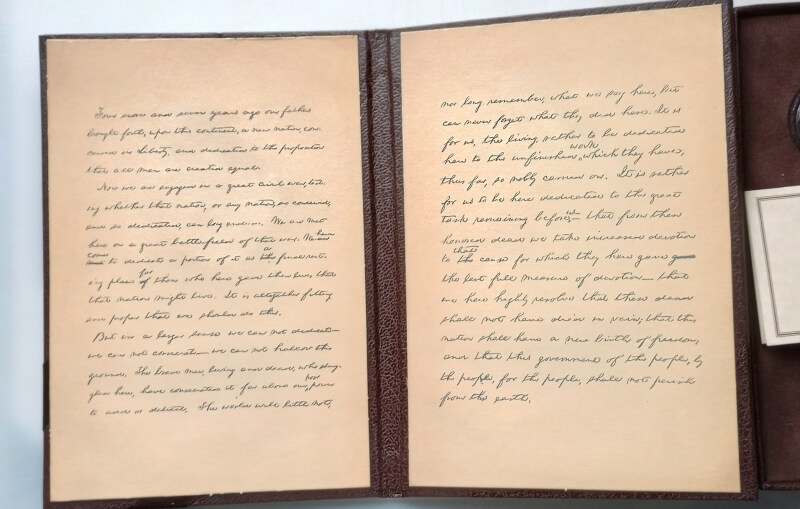 Four score and seven years ago our fathers
brought forth, upon this continent, a new nation, con-
ceived in Liberty, and dedicated to the proposition
that all men are created equal.
Now we are engaged in a great civil war, test-
ing whether that nation, or any nation, so conceived,
and so dedicated, can long endure. We are met
here on a great battle-field of that war. We have
come to dedicate a portion of it as a final rest-
ing place for those who here gave their lives that
that nation might live. It is altogether fitting
and proper that we should do this.
But in a larger sense we can not dedicate—
we can not consecrate— we can not hallow this
ground. The brave men, living and dead, who strug-
gled here, have consecrated it far above our poor power
to add or detract. The world will little note,
nor long remember, what we say here, but
can never forget what they did here. It is
for us, the living, rather to be dedicated
here to the unfinished work which they have,
thus far, so nobly carried on. It is rather
for us to be here dedicated to the great
task remaining before us— that from these
honored dead we take increased devotion
to that cause for which they here gave
the last full measure of devotion— that
we here highly resolve that these dead
shall not have died in vain; that this
nation shall have a new birth of freedom;
and that this government of the people, by
the people, for the people, shall not perish
from the earth.